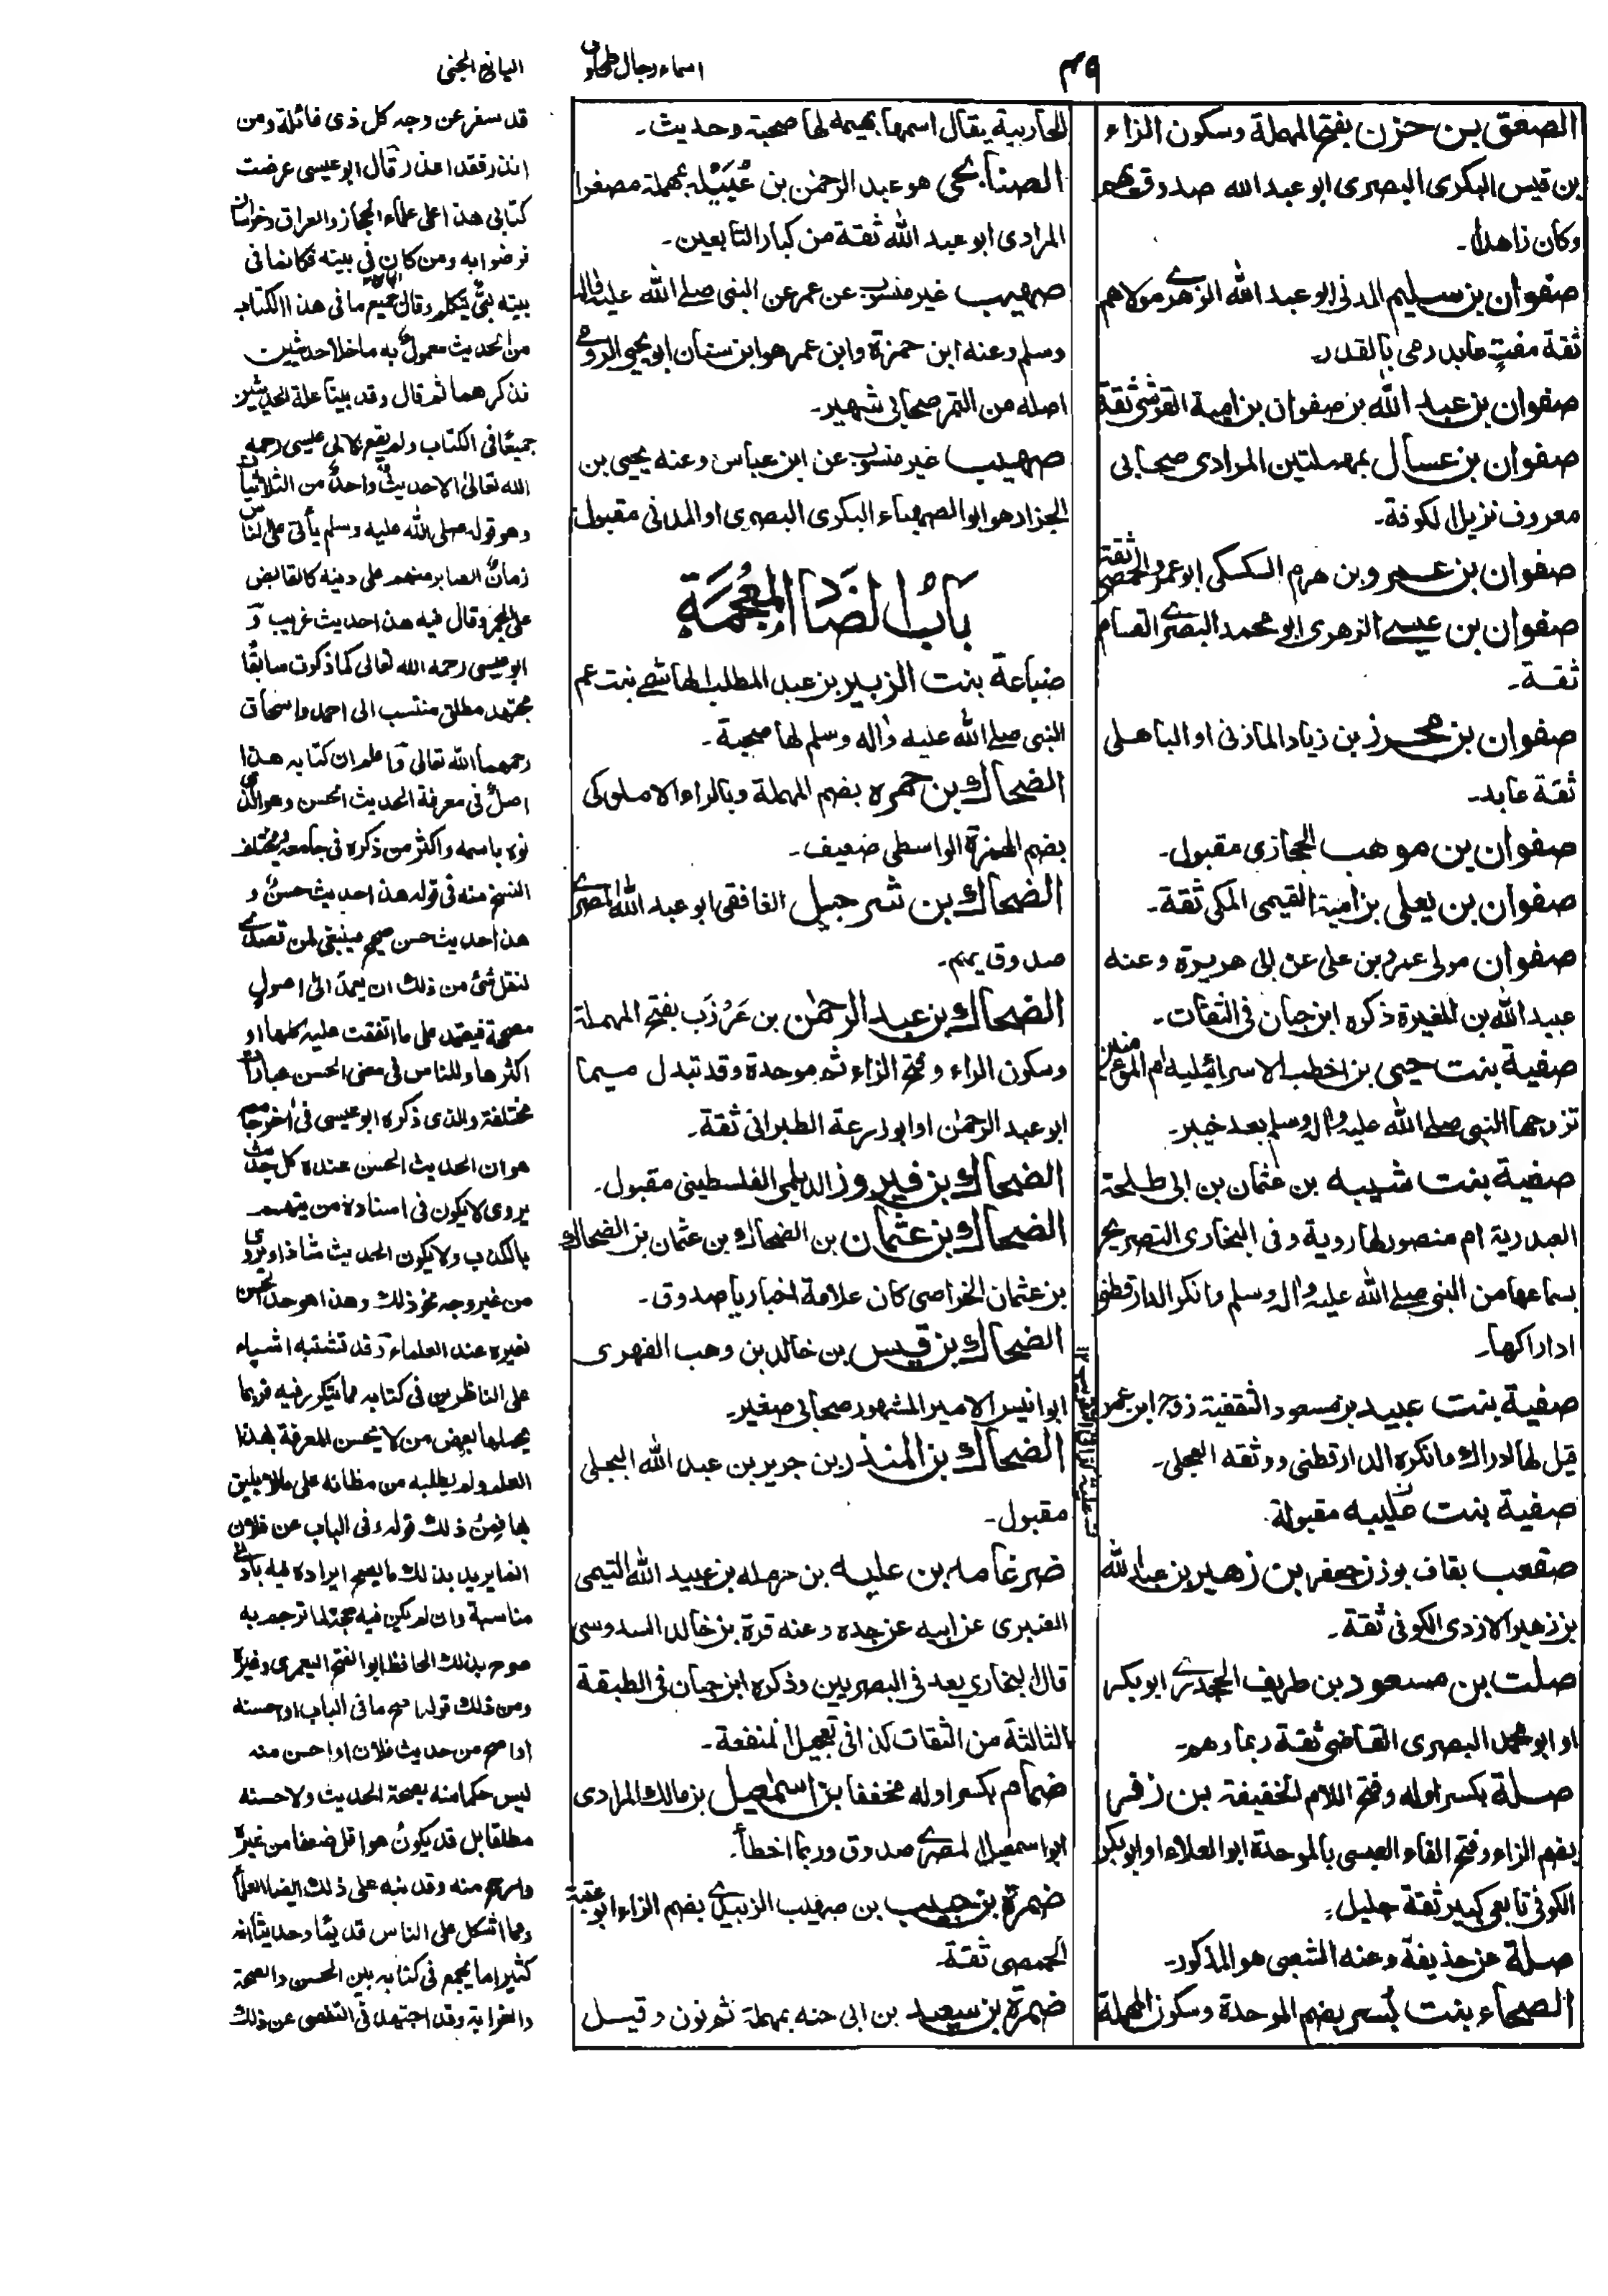 ٣٩
اسماء رجال طحاوی
اليانع الجنی
الصعق بن حزن بفتح المهملة وسكون الزاء
بن قيس البكری البصری ابو عبد الله صدوق يهم
وكان زاهدا۔
صفوان بن سليم المدنی ابو عبد الله الزهری مولاهم
ثقة مفتٍ عابد رمی بالقدر۔
صفوان بن عبد الله بن صفوان بن امية القرشی ثقة
صفوان بن عسال بمهملتين المرادی صحابی
معروف نزيل الكوفة۔
صفوان بن عمرو بن هرم السكسكی ابو عمرو الحمصی ثقة
صفوان بن عيسے الزهری ابو محمد البصری القسام
ثقة۔
صفوان بن محرز بن زياد المازنی او الباهلی
ثقة عابد۔
صفوان بن موهب الحجازی مقبول۔
صفوان بن يعلی بن امية التيمی المكی ثقة۔
صفوان مولی عمرو بن علی عن ابی هريرة وعنه
عبيد الله بن المغيرة ذكره ابن حبان فی الثقات۔
صفية بنت حيی بن اخطب الاسرائيلية ام المؤمنين
تزوجها النبی صلے الله عليه واله وسلم بعد خيبر۔
صفية بنت شيبه بن عثمان بن ابی طلحة
العبدرية ام منصور لها روية وفی البخاری التصريح
بسماعها من النبی صلے الله عليه واله وسلم وانكر الدارقطنی
ادراكها۔
صفية بنت عبيد بن مسعود الثقفية زوجة ابن عمر
قيل لها ادراك وانكره الدارقطنی ووثقه العجلی۔
صفية بنت عليبه مقبولة۔
صقعب بقاف بوزن جعفر بن زهير بن عبد الله
بن زهير الازدی الكوفی ثقة۔
صلت بن مسعود بن طريف الجحدری ابو بكر
او ابو محمد البصری القاضی ثقة ربما وهم۔
صلة بكسر اوله وفتح اللام الخفيفة بن زفر
بضم الزاء وفتح الفاء العبسی بالموحدة ابو العلاء او ابو بكر
الكوفی تابعی كبير ثقة جليل۔
صلة عن حذيفة وعنه الشعبی هو المذكور۔
الصماء بنت بُسر بضم الموحدة وسكون المهملة
الحاربية يقال اسمها بهيمه لها صحبة وحديث۔
الصنابحی هو عبد الرحمٰن بن عُسَيْله بمهملة مصغرا
المرادی ابو عبد الله ثقة من كبار التابعين۔
صهيب غير منسوب عن عمر عن النبی صلے الله عليه واله
وسلم وعنه ابن حمزة وابن عمر هو ابن سنان ابو يحيی الرومی
اصله من النمر صحابی شهير۔
صهيب غير منسوب عن ابن عباس وعنه يحيی بن
الجزار هو ابو الصهباء البكری البصری او المدنی مقبول
بَابُ الضَّادِ المُعْجَمَةِ
ضباعة بنت الزبير بن عبد المطلب الهاشمے بنت عم
النبی صلے الله عليه واله وسلم لها صحبة۔
الضحاك بن حمره بضم المهملة وبالراء الاملوكی
بضم الهمزة الواسطی ضعيف۔
الضحاك بن شرحبيل الغافقی ابو عبد الله المصری
صدوق يهم۔
الضحاك بن عبد الرحمٰن بن عَرْزَب بفتح المهملة
وسكون الراء وفتح الزاء ثم موحدة وقد تبدل ميما
ابو عبد الرحمٰن او ابو زرعة الطبرانی ثقة۔
الضحاك بن فيروز الديلمی الفلسطينی مقبول۔
الضحاك بن عثمان بن الضحاك بن عثمان بن الضحاك
بن عثمان الخراصی كان علامة اخباريا صدوق۔
الضحاك بن قيس بن خالد بن وهب الفهری
ابو انيس الامير المشهور صحابی صغير۔
الضحاك بن المنذر بن جرير بن عبد الله البجلی
مقبول۔
ضرغامه بن عليه بن حرمله بن عبيد الله التيمی
العنبری عن ابيه عن جده وعنه قرة بن خالد السدوسی
قال البخاری يعد فی البصريين وذكره ابن حبان فی الطبقة
الثالثة من الثقات كذا فی تعجيل المنفعة۔
ضمام بكسر اوله مخففا بن اسمٰعيل بن مالك المرادی
ابو اسمعيل المصری صدوق وربما اخطأ۔
ضمرة بن حبيب بن صهيب الزبيدی بضم الزاء ابو عتبة
الحمصی ثقة۔
ضمرة بن سعيد بن ابی حنه بمهملة ثم نون وقيل
قد سفر عن وجه كل ذی فائلة ومن
انذر فقد اعذر قال ابو عيسی عرضت
كتابی هذا علی علماء الحجاز والعراق وخراسان
فرضوا به ومن كان فی بيته فكانما فی
بيته نبیٌّ يتكلم وقال جميع ما فی هذا الكتاب
من الحديث معمول به ما خلا حديثين
نذكرهما ثم قال وقد بينا علة الحديثين
جميعًا فی الكتاب ولم يقع لابی عيسی رحمه
الله تعالیٰ الا حديثٌ واحدٌ من الثلاثيات
وهو قوله صلی الله عليه وسلم يأتی علی الناس
زمانٌ الصابر منهم علی دينه كالقابض
علی الجمر وقال فيه هذا حديث غريب وَ
ابو عيسی رحمه الله تعالی كما ذكرت سابقًا
مجتهد مطلق منتسب الی احمد واسحاق
رحمهما الله تعالی وَاعلم ان كتابه هذا
اصلٌ فی معرفة الحديث الحسن وهو الذی
نوه باسمه واكثر من ذكره فی جامعه ويختلف
النسخ منه فی قوله هذا حديث حسنٌ و
هذا حديث حسن صحيح فينبغی لمن تصدی
لنقل شئ من ذلك ان يعمدَ الی اصولٍ
مصححة فيعتمد علی ما اتفقت عليه كلها او
اكثرها وللناس فی معنی الحسن عبارات
مختلفة والذی ذكره ابو عيسی فی اٰخر جامعه
هو ان الحديث الحسن عنده كل حديث
يروی لا يكون فی اسناده من يتهم
بالكذب ولا يكون الحديث شاذا ويروی
من غير وجه نحو ذلك وهذا هو حد الحسن
لغيره عند العلماء وَقد تشتبه اشياء
علی الناظرين فی كتابه مما يتكرر فيه فربما
يحملها بعض من لا يحسن المعرفة بهذا
العلم ولم يطلبه من مظانه علی ما لا يليق
بها فمِنْ ذلك قوله وفی الباب عن فلان
انما يريد بذلك ما يصح ايراده فيه بادنی
مناسبة وان لم يكن فيه حجة لما ترجم به
صرح بذلك الحافظ ابو الفتح اليعمری وغيره
ومن ذلك قوله اصح ما فی الباب او احسنه
او اصح من حديث فلان او احسن منه
ليس حكما منه بصحة الحديث ولا حسنه
مطلقا بل قد يكونُ هو اقل ضعفا من غيره
وارجح منه وقد نبه علی ذلك ايضا العلماء
ومما اشكل علی الناس قديمًا وحديثًا انه
كثيرا ما يجمع فی كتابه بين الحسن والصحة
والغرابة وقد اجتهد فی التفصی عن ذلك